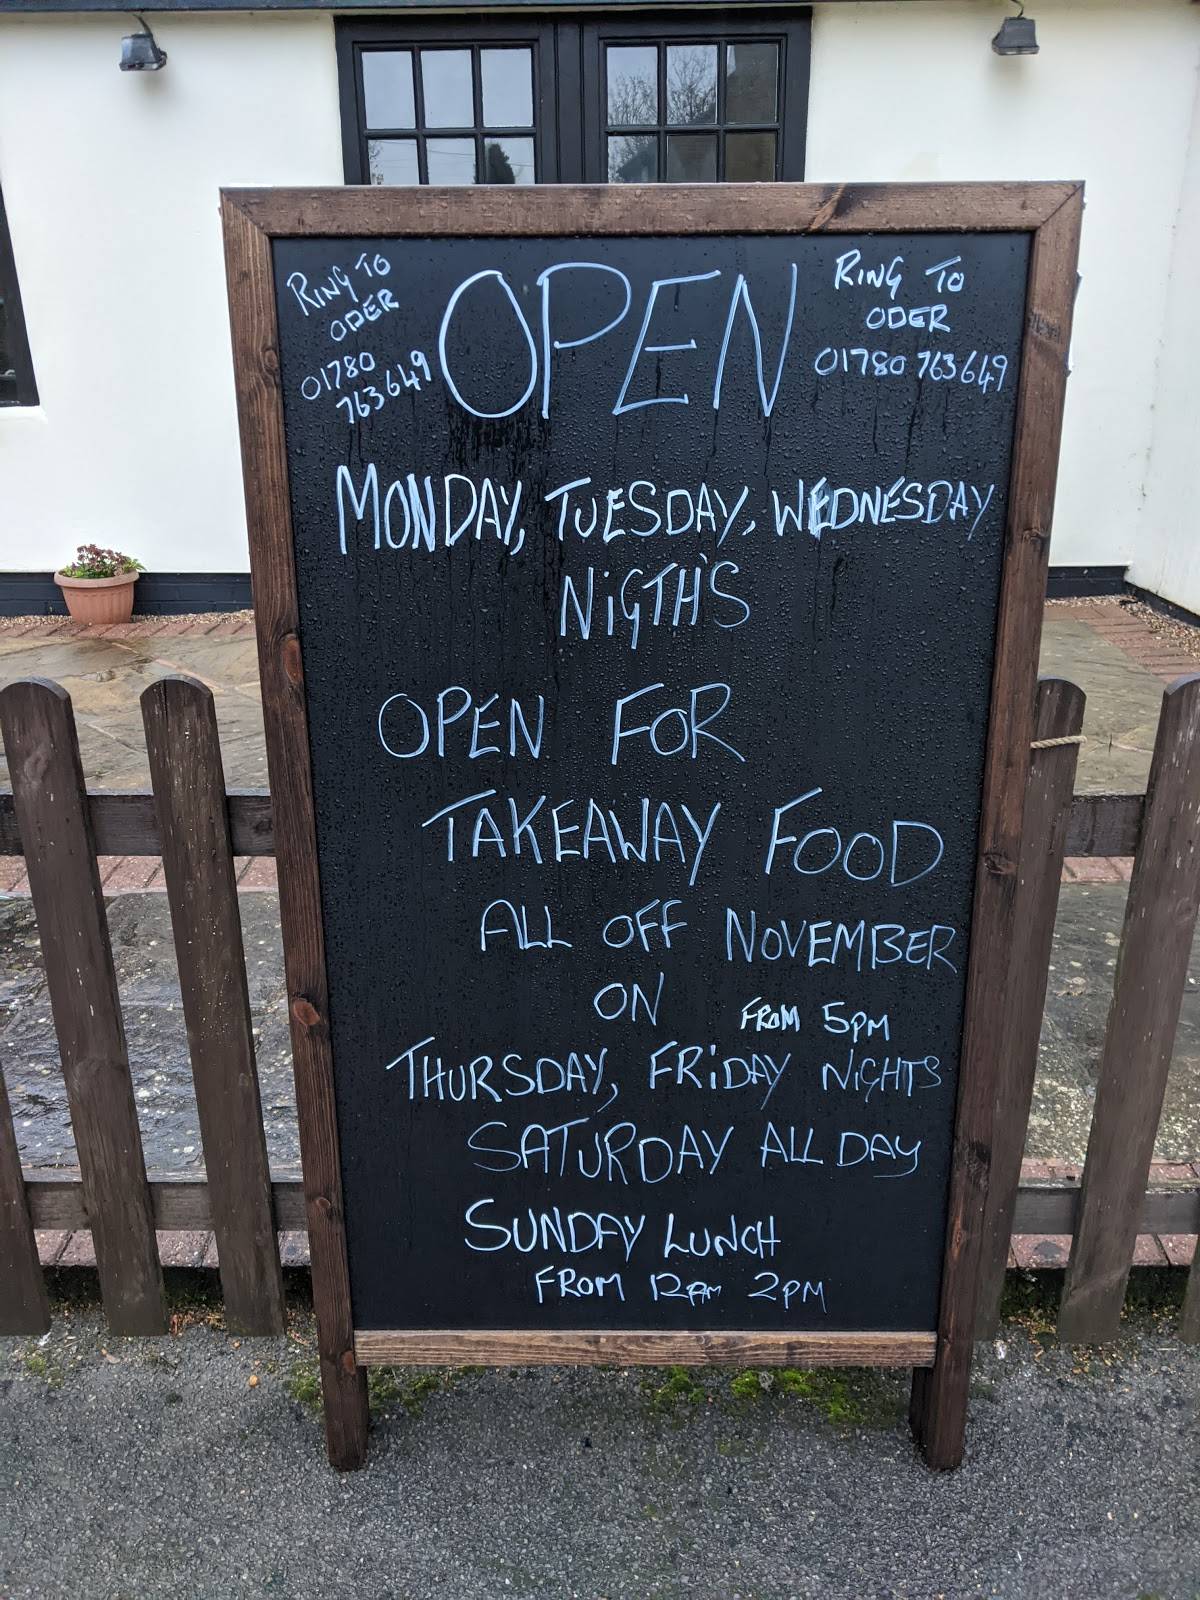 RING TO
ODER
01780
763649
OPEN
RING TO
ODER
01780 763649
MONDAY, TUESDAY, WEDNESDAY
NIGTH'S
OPEN FOR
TAKEAWAY FOOD
ALL OFF NOVEMBER
ON FROM 5PM
THURSDAY, FRIDAY NIGHTS
SATURDAY ALL DAY
SUNDAY LUNCH
FROM 12AM 2PM